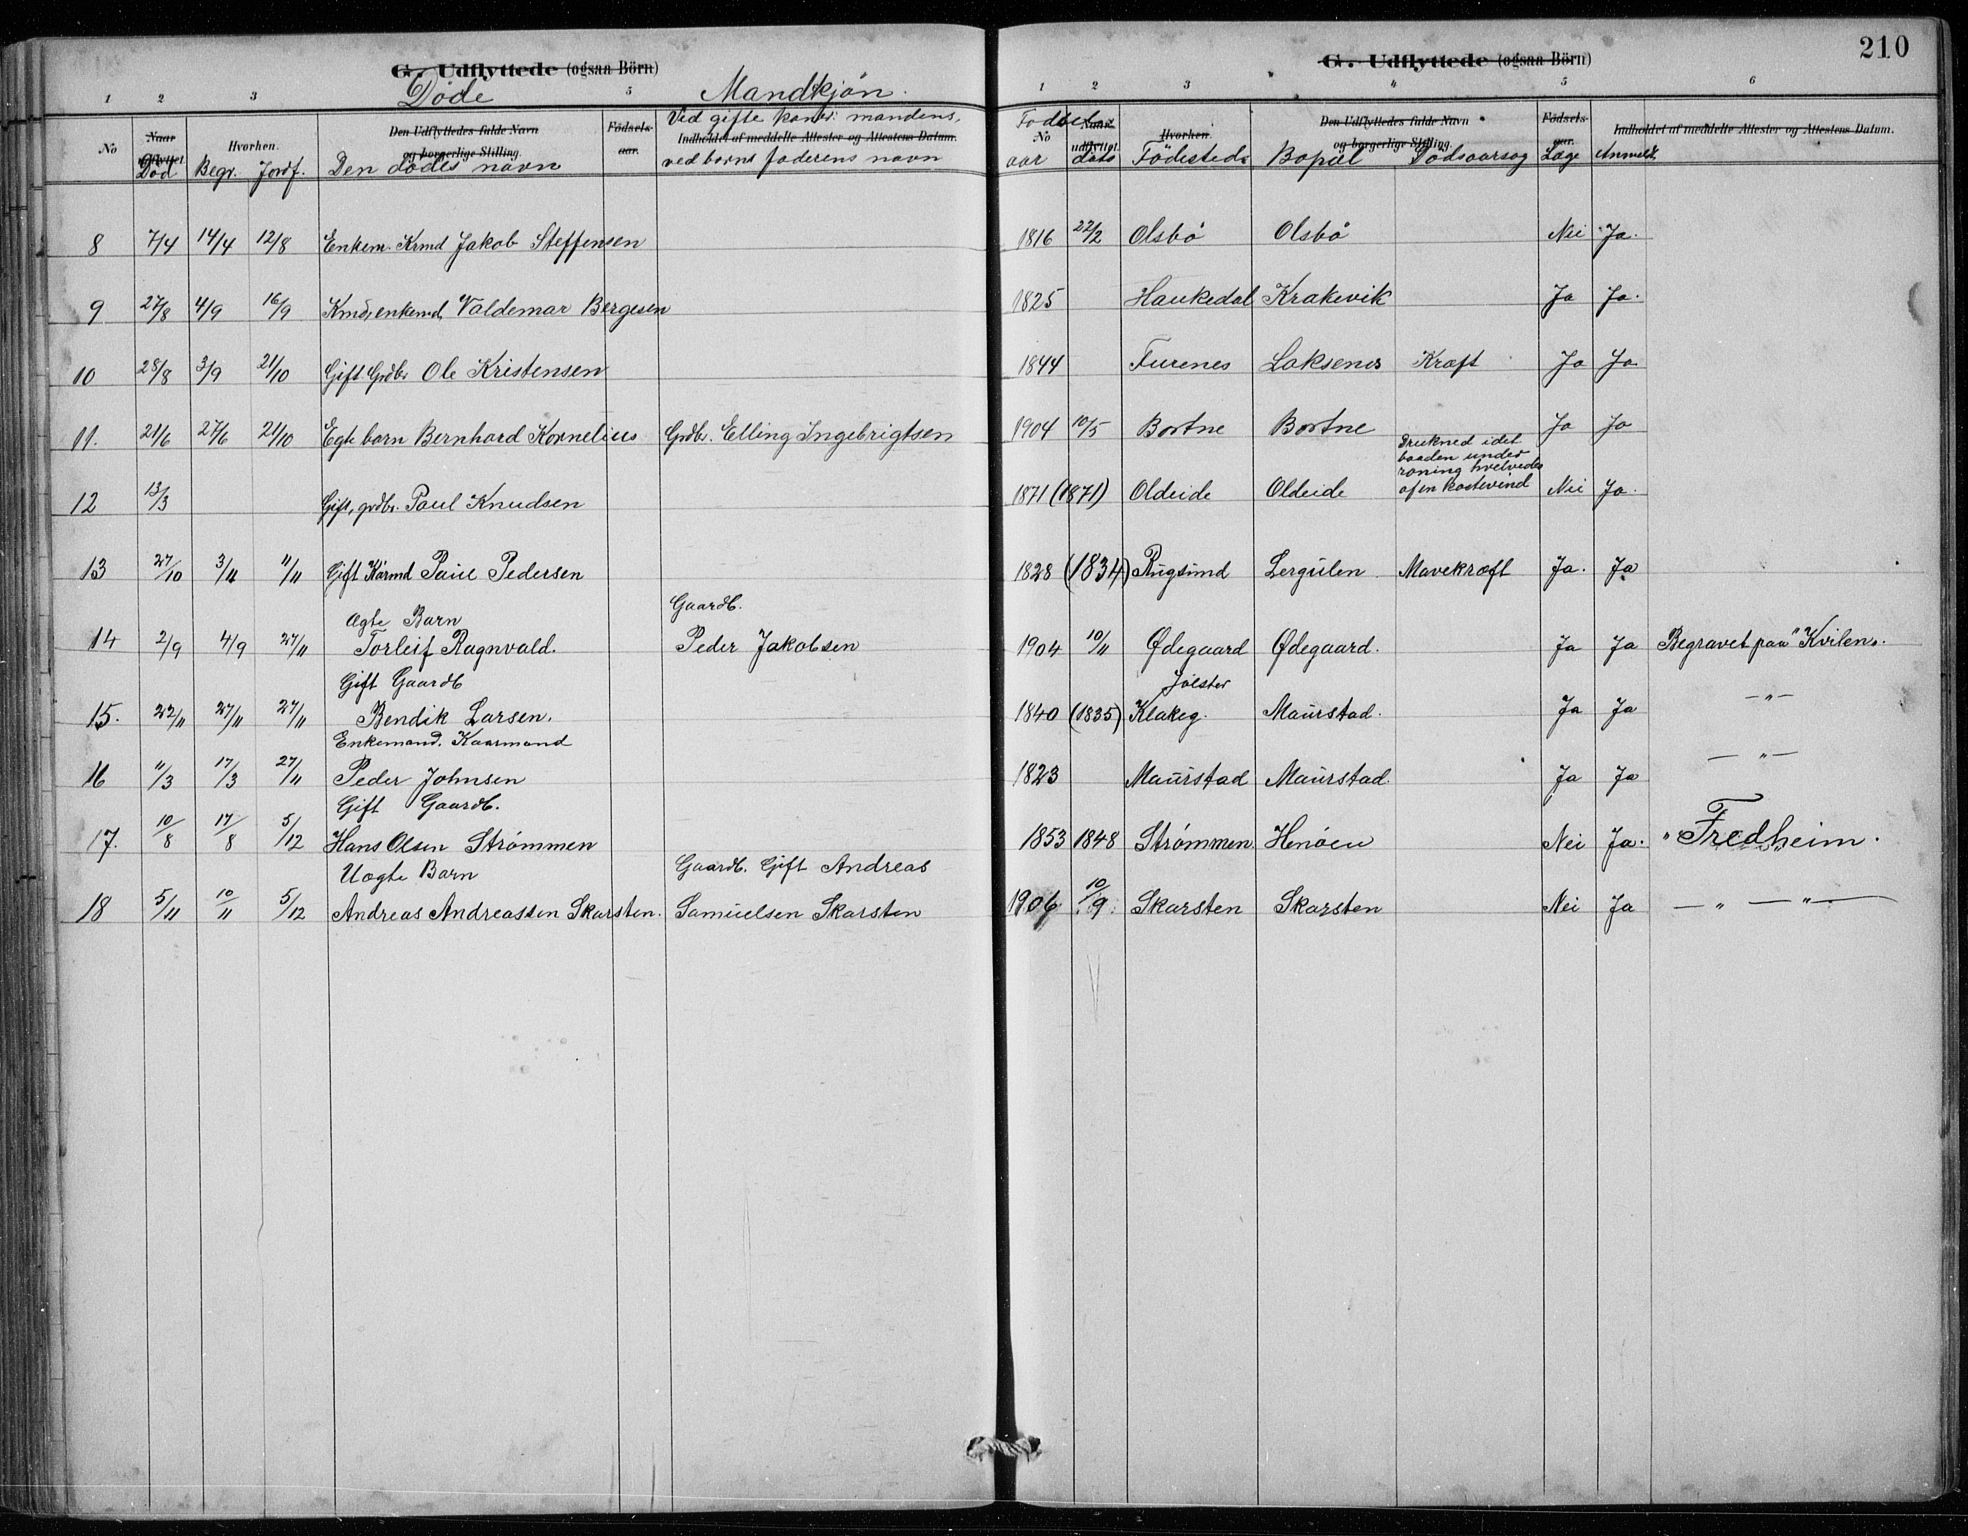 210
G. Udflyttede (ogsaa Börn)
Döde Mandkjön.
1 2 3 5
No
Naar udflyttet. Död
Hvorhen. Begr. Jordf.
Den Udflyttedes fulde Navn og borgerlige Stilling.
Den dödes navn
Födsels-aar.
Ved gifte koner: mandens,
Indholdet af meddelte Attester og Attestens Datum.
ved börns faderens navn
G. Udflyttede (ogsaa Börn)
1 2 3 4 5 6
No aar dato
Hvorhen. Födested
Den Udflyttedes fulde Navn og borgerlige Stilling.
Bopæl Dödsaarsag
Födsels-aar. Læge Anmeldt
Indholdet af meddelte Attester og Attestens Datum.
8 7/4 14/4 12/8 Enkem. Krmd Jakob Steffensen 1816 22/2 Olsbö Olsbö Nei Ja.
9 27/8 4/9 16/9 Krmd, enkemd, Valdemar Bergesen 1825 Haukedal Krakevik Ja Ja.
10 28/8 3/9 21/10 Gift Grdbr Ole Kristensen 1844 Furenes Laksenes Kræft Ja Ja
11. 21/6 27/6 21/10 Egte barn Bernhard Kornelius Grdbr. Elling Ingebrigtsen 1904 10/5 Bortne Bortne Ja Ja
Drukned idet
baaden under
roning hvelvedes
af en kastevind
12 13/3 Gift, grdbr. Paul Knudsen 1871 (1871) Oldeide Oldeide Nei Ja.
13 27/10 3/11 11/11 Gift Kårmd Paul Pedersen 1828 (1834) Rugsund Lergulen Mavekræft Ja. Ja
Ægte Barn Gaardb.
14 2/9 4/9 27/11 Torleif Ragnvald. Peder Jakobsen 1904 10/11 Ødegaard Ødegaard. Ja Ja Begravet paa "Kvilen".
Gift Gaardb Jölster
15. 22/11 27/11 27/11 Bendik Larsen. 1840 (1835) Klakeg. Maurstad. Ja Ja —"—
Enkemand. Kaarmand
16 11/3 17/3 27/11 Peder Johnsen 1823 Maurstad Maurstad. Ja Ja —"—
Gift Gaardb.
17. 10/8 17/8 5/12 Hans Olsen Strømmen 1853 1848 Strømmen Henöen Nei Ja. "Fredheim.
Uægte Barn Gaardb. Gift Andreas
18 5/11 10/11 5/12 Andreas Andreassen Skarsten. Samuelsen Skarsten 1906 10/9. Skarsten Skarsten Nei Ja —"—"—